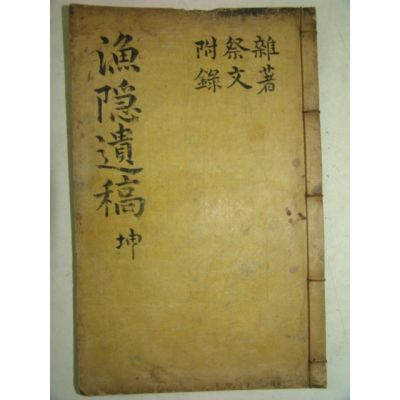 漁隠遺稿 坤
雜著
祭文
附錄